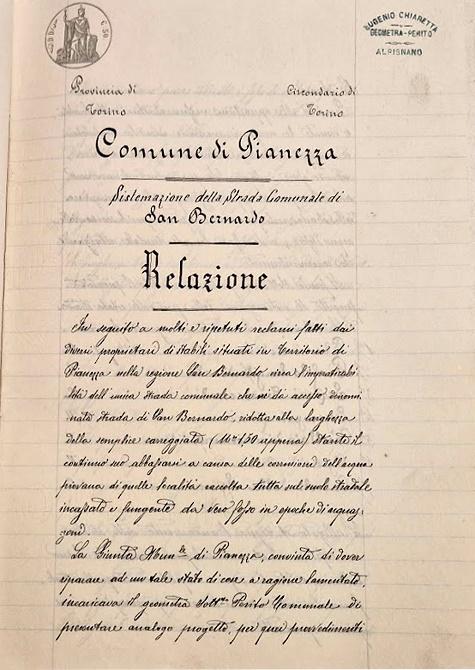 C. 50
EUGENIO CHIARETTA
GEOMETRA-PERITO
ALPIGNANO
Provincia di
Torino
Circondario di
Torino
Comune di Pianezza
Sistemazione della Strada Comunale di
San Bernardo
Relazione
In seguito a molti e ripetuti reclami fatti dai
diversi proprietari di stabili situati in territorio di
Pianezza nella regione San Bernardo circa l'impraticabi
lità dell'unica strada comunale che vi dà accesso, denomi
nata strada di San Bernardo, ridotta alla larghezza
della semplice carreggiata (Mi 1,50 appena) stante il
continuo suo abbassarsi a causa delle corrosioni dell'acqua
piovana di quelle località raccolta tutta sul suolo stradale
incassato e fungente da vero fosso in epoche di acquaz-
zoni.
La Giunta Mun.le di Pianezza, convinta di dover
riparare ad un tale stato di cose a ragione lamentato,
incaricava il geometra Sott.to Perito Comunale di
presentare analogo progetto, per quei provvedimenti